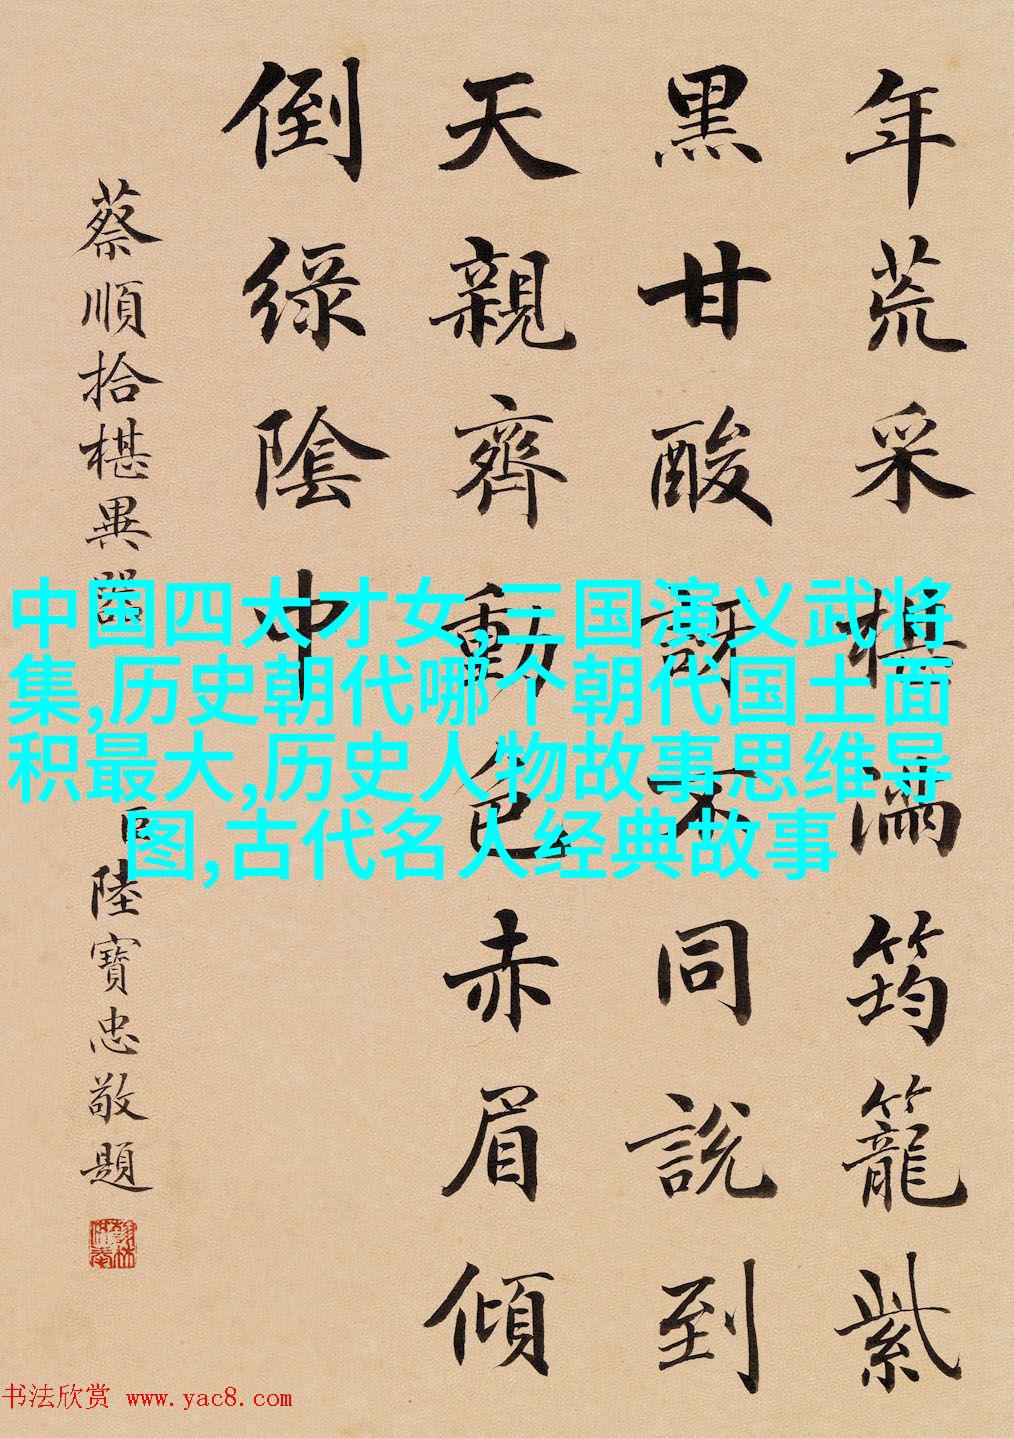 年荒采椹滿筠籠紫
黑甘酸訝不同說到
天親齊動色赤眉傾
倒綠陰中
蔡順拾椹異器 臣陸寶忠敬題
中国四大才女,三国演义武将
集,历史朝代哪个朝代国土面
积最大,历史人物故事思维导
图,古代名人经典故事
书法欣赏 www.yac8.com